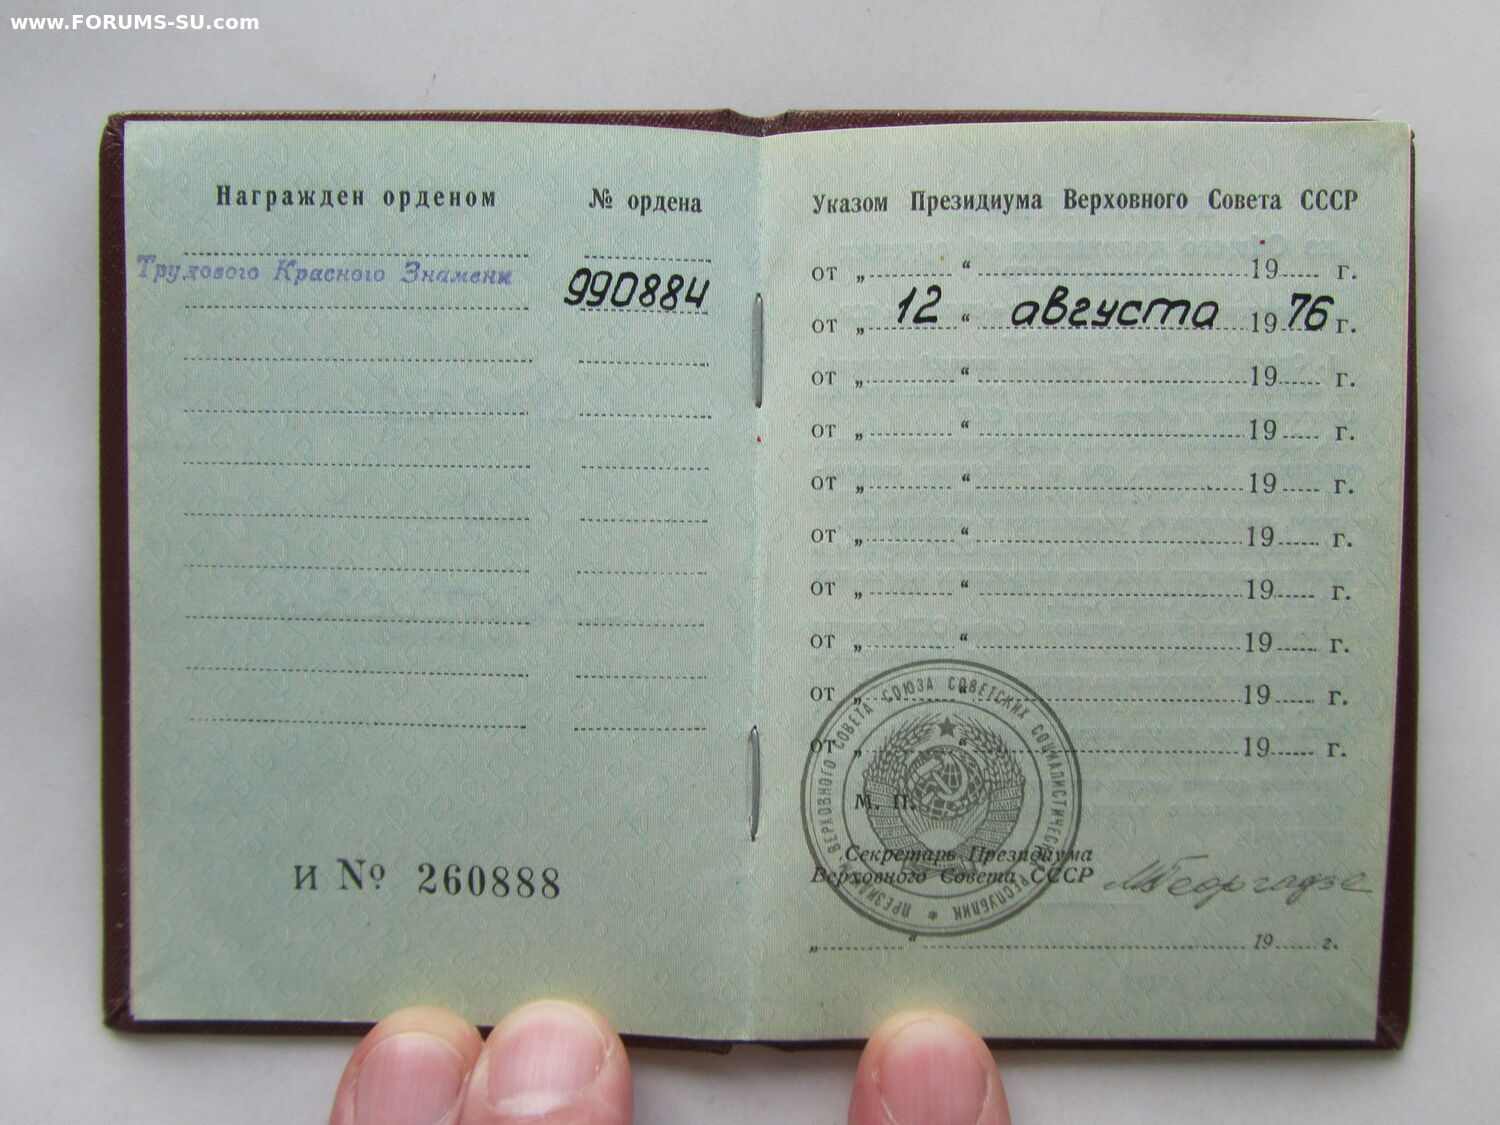 www.FORUMS-SU.com
Награжден орденом № ордена
Трудового Красного Знамени 990884
И № 260888
Указом Президиума Верховного Совета СССР
от „ “ 19 г.
от „ 12 “ августа 19 76 г.
от „ “ 19 г.
от „ “ 19 г.
от „ “ 19 г.
от „ “ 19 г.
от „ “ 19 г.
от „ “ 19 г.
от „ “ 19 г.
от „ “ 19 г.
М. П.
ПРЕЗИДИУМ ВЕРХОВНОГО СОВЕТА СОЮЗА СОВЕТСКИХ СОЦИАЛИСТИЧЕСКИХ РЕСПУБЛИК *
Секретарь Президиума
Верховного Совета СССР МГеоргадзе
„ “ 19 г.